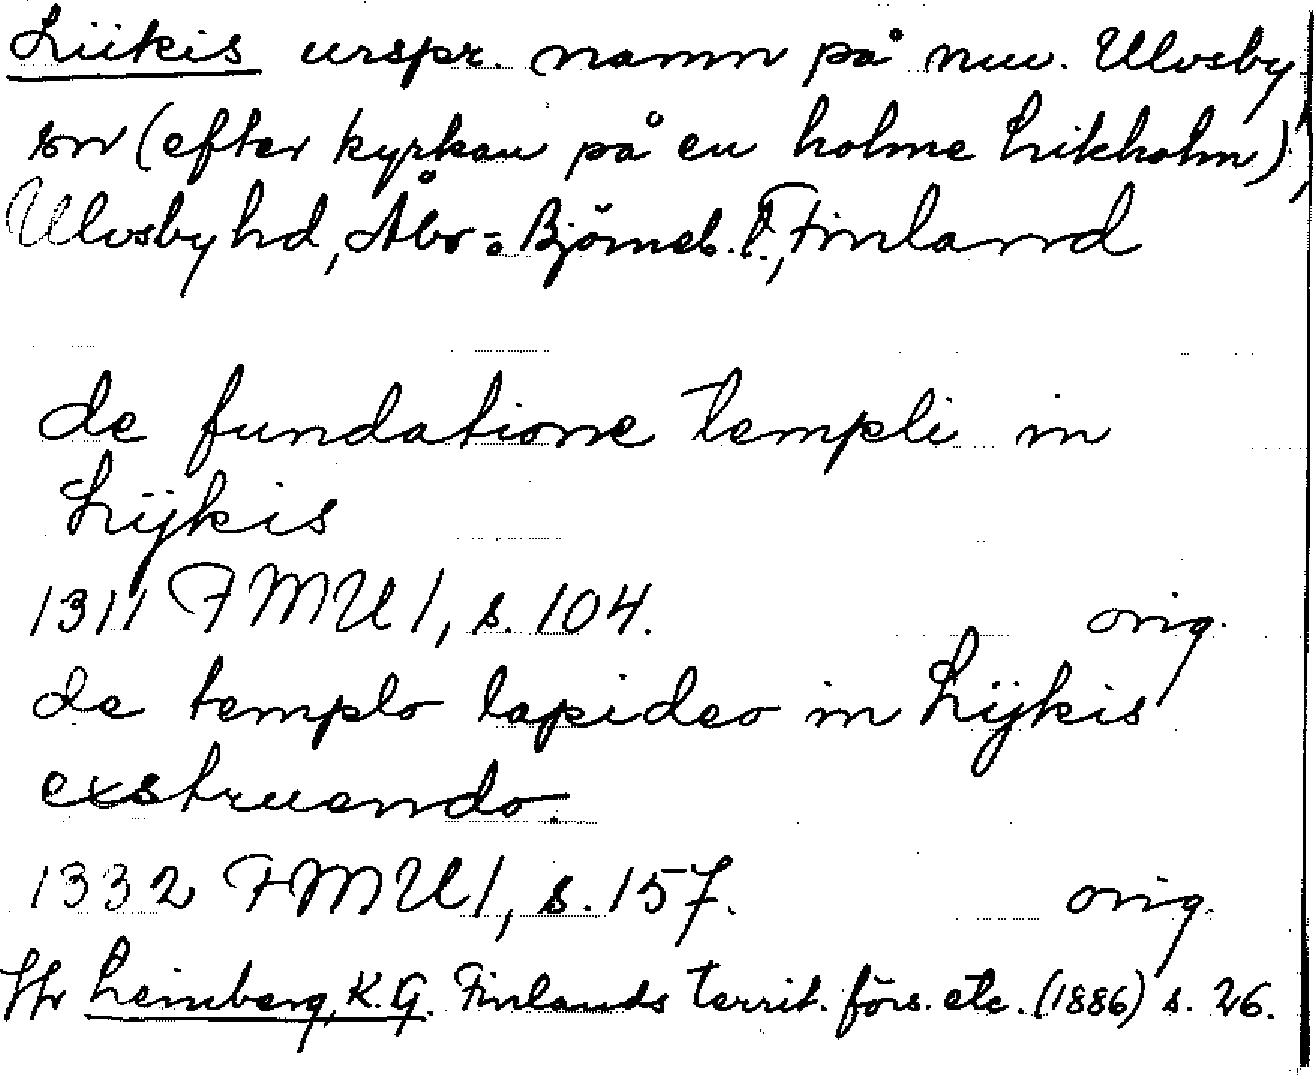 Liikis urspr. namn på nuv. Ulvsby
sn (efter kyrkan på en holme Likholm),
Ulvsby hd, Åbo-Björneb. l., Finland
de fundatione templi in
Lijkis
1311 FMU 1, s. 104. orig.
de templo lapideo in Lijkis
exstruendo.
1332 FMU 1, s. 157. orig.
Jfr Leinberg, K.G. Finlands territ. förs. etc. (1886) s. 26.